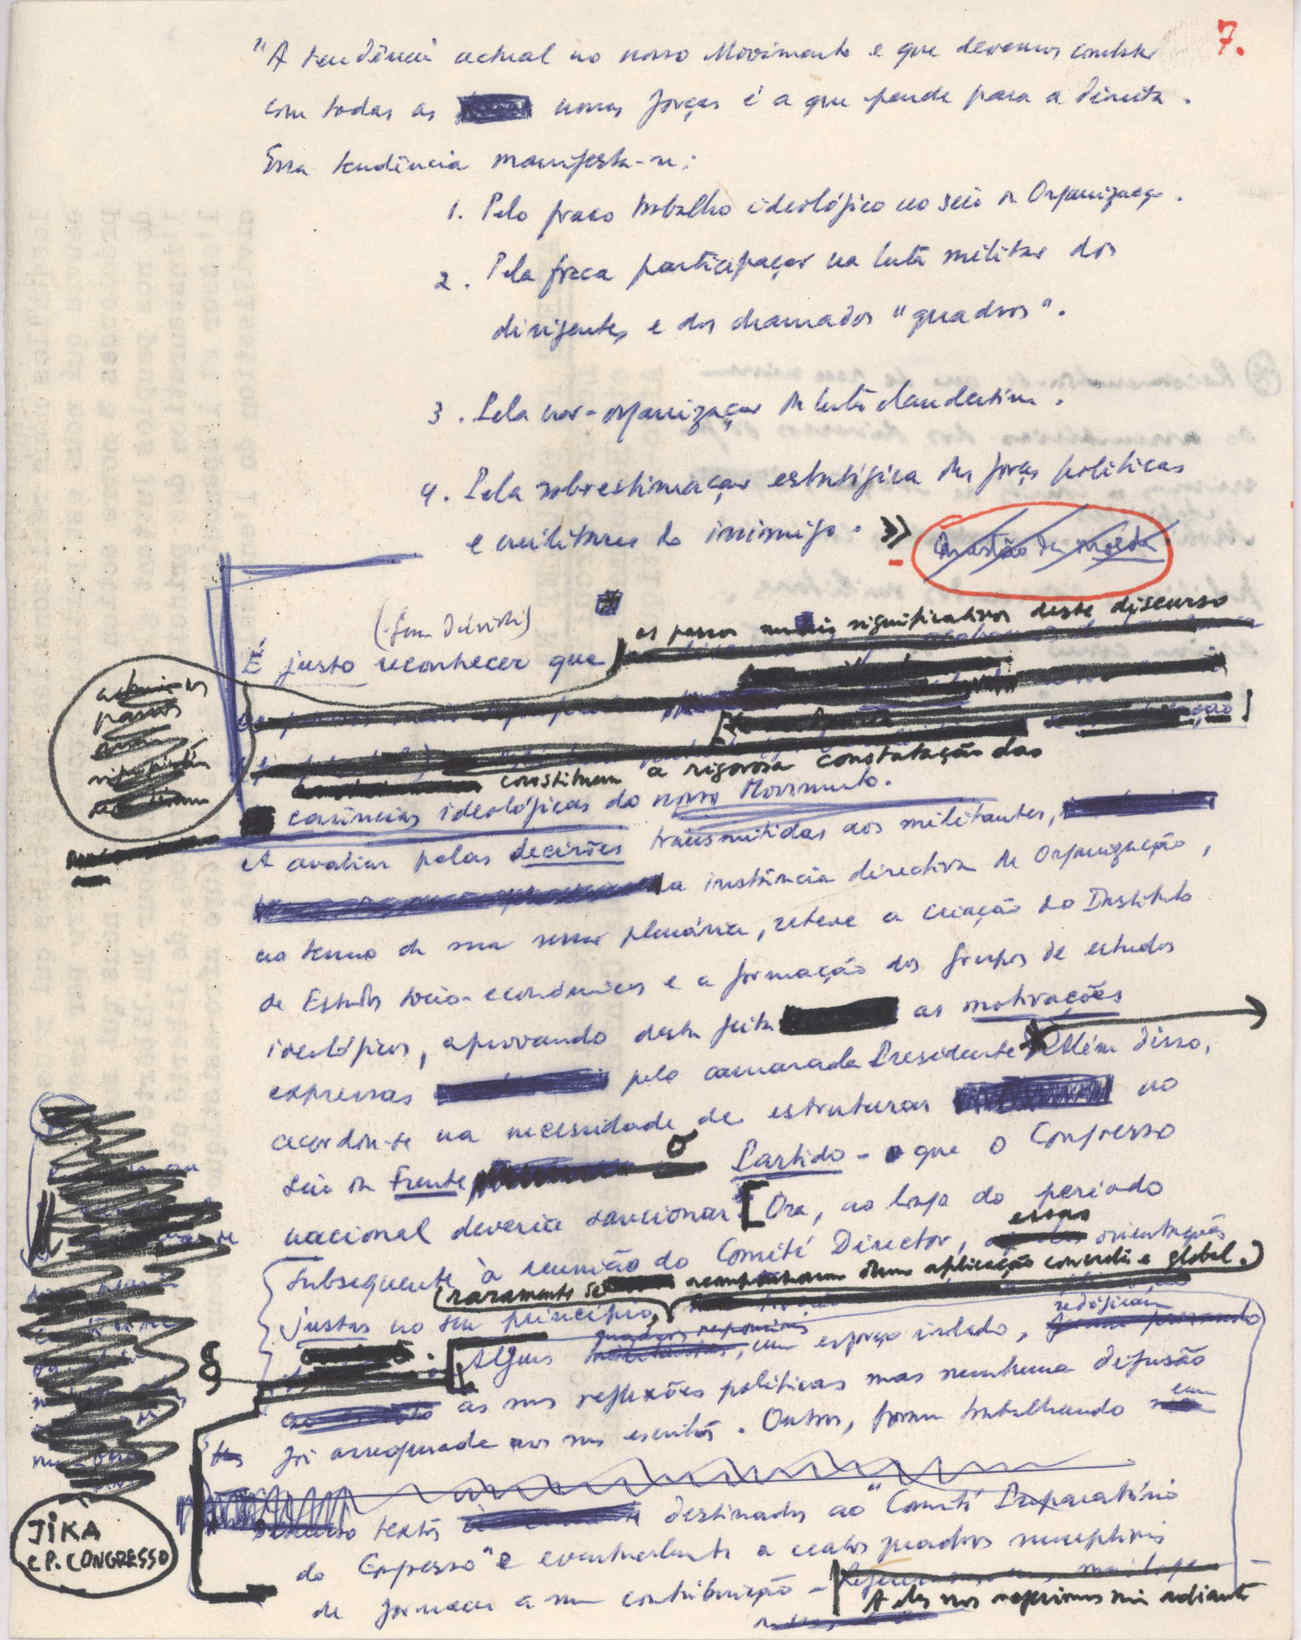 7.
"A tendência actual no nosso Movimento e que devemos combater
com todas as nossas forças é a que pende para a direita.
Essa tendência manifesta-se:
1. Pelo fraco trabalho ideológico no seio da Organização.
2. Pela fraca participação na luta militar dos
dirigentes e dos chamados "quadros".
3. Pela não-organização da luta clandestina.
4. Pela sobrestimação estratégica das forças políticas
e militares do inimigo. »
Questão da moeda
(sem dúvida)
os passos mais significativos deste discurso
É justo reconhecer que
constituem a rigorosa constatação das
carências ideológicas do nosso Movimento.
A avaliar pelas decisões transmitidas aos militantes,
a instância directiva da Organização,
ao termo da sua sessão plenária, reteve a criação do Instituto
de Estudos socio-económicos e a formação dos grupos de estudos
ideológicos, aprovando desta feita as motivações
expressas pelo camarada Presidente. Além disso,
acordou-se na necessidade de estruturar no
seio da Frente o Partido - que o Congresso
nacional deveria sancionar. [Ora, ao longo do período
subsequente à reunião do Comité Director, essas orientações
(raramente se aplicação concreta e global.)
justas no seu princípio,
Alguns quadros, num esforço isolado, redigiram
as suas reflexões políticas mas nenhuma difusão
foi assegurada aos seus escritos. Outros, foram trabalhando em
textos destinados ao "Comité Preparatório
do Congresso" e eventualmente a certos quadros susceptíveis
de fornecer a sua contribuição -
A eles nos referimos mais adiante
JIKA
C P. CONGRESSO